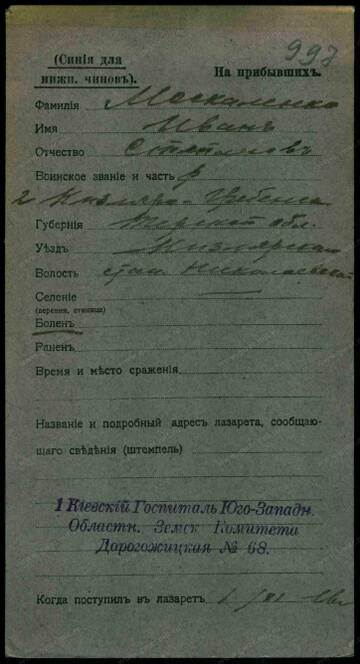 997
(Синія для
нижн. чиновъ).
На прибывшихъ.
Фамилія Москаленко
Имя Иванъ
Отчество
Воинское званіе и часть р
2 Кизляро-Гребенск
Губернія Терской обл.
Уѣздъ Кизлярская
Волость стан. Николаевской
Селеніе
(деревня, станица)
Боленъ
Раненъ
Время и мѣсто сраженія
Названіе и подробный адресъ лазарета, сообщаю-
щаго свѣдѣнія (штемпель)
1 Кіевскій Госпиталь Юго-Западн.
Областн. Земск Комитета
Дорогожицкая № 68.
Когда поступилъ въ лазаретъ